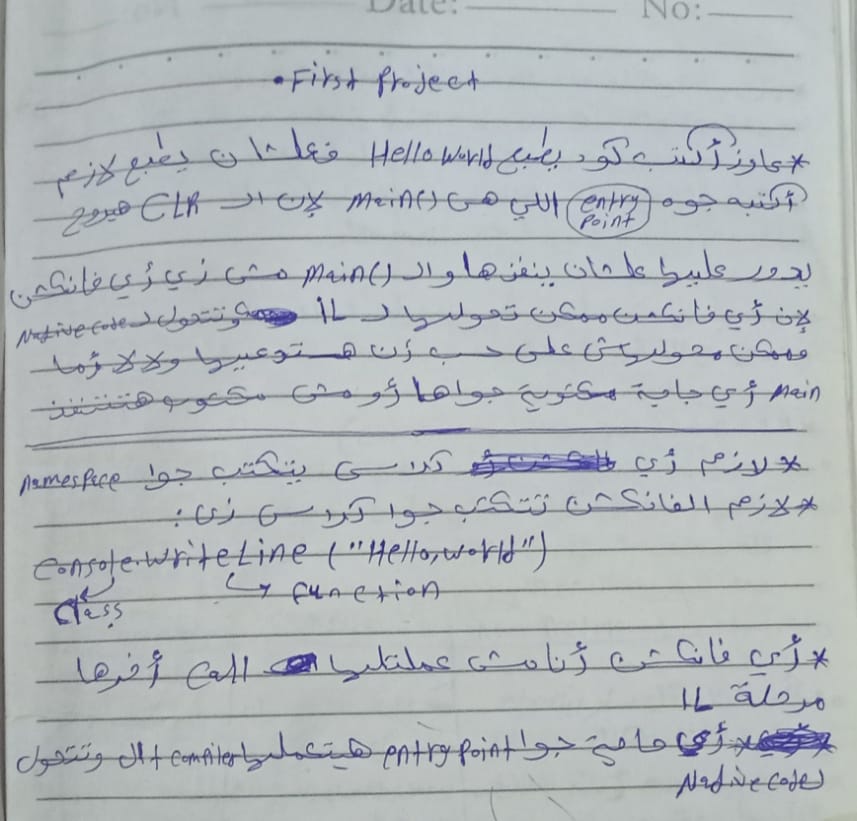 Date: No:
• First Project
* عاوز أكتب كود يطبع Hello World فعلشان يطبع لازم
أكتبه جوه entry point اللي هي Main() لإن الـ CLR هيروح
يدور عليها علشان ينفزها والـ Main() مش زي أي فانكشن
لإن أي فانكشن ممكن تحولها لـ IL وتتحول لـ Native Code
وممكن على حسب أن هستدعيها ولا لا أما
Main أي حاجة مكتوبة جواها أو مش مكتوب هتتنفذ
* لازم أي كلاس يتكتب جوا namespace
* لازم الفانكشن تتكتب جوا كلاس زي:
Console.WriteLine ("Hello, World")
Class function
* أي فانكشن أنا مش عملتلها call أخرها
مرحلة IL
* أي حاجة جوا entry point هيتعملها compiler وتتحول
Native Code